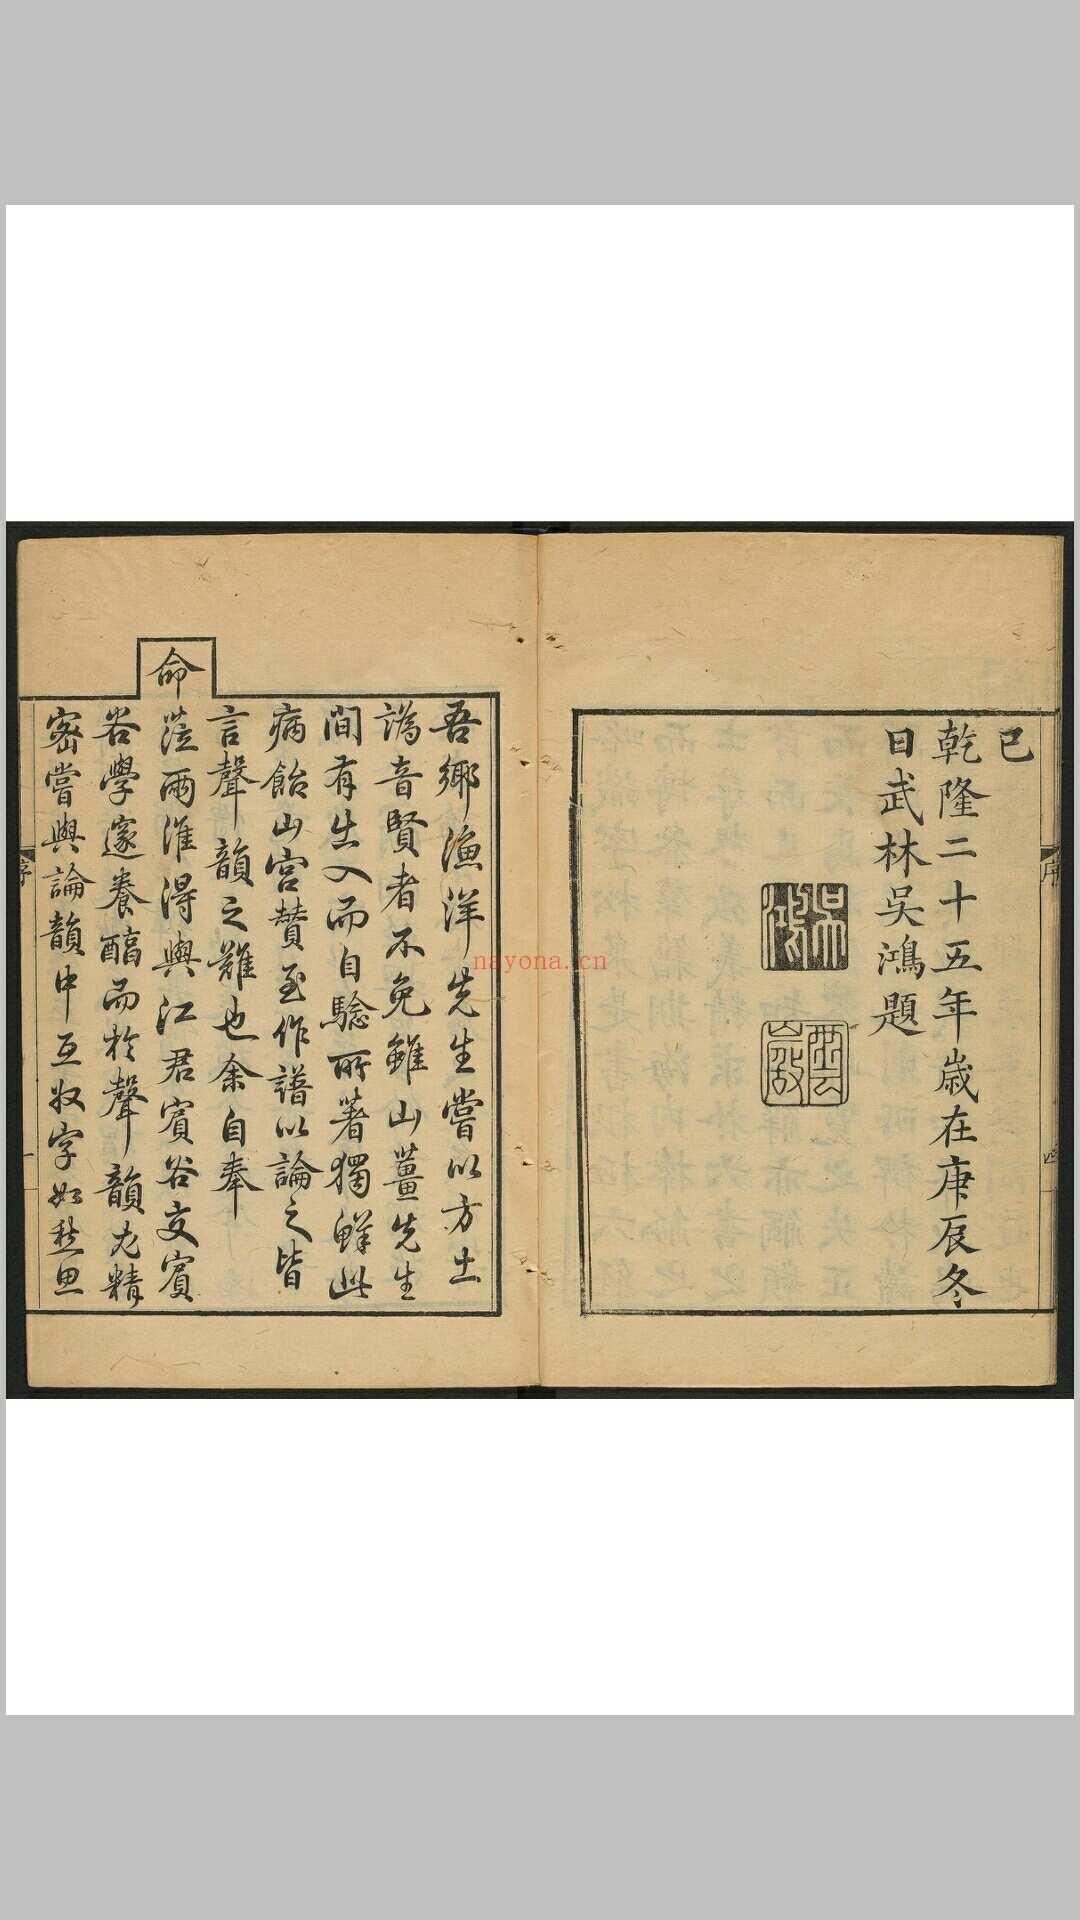 已
乾隆二十五年歲在庚辰冬
日武林吳鴻題
吳鴻
雲巖
序
四
吾鄉漁洋先生嘗以方土
譌音賢者不免雖山薑先生
間有出入而自騐所著獨鮮此
病飴山宮贊至作譜以論之皆
言聲韻之難也余自奉
命蒞兩淮得與江君賓谷交賓
谷學邃養醇而於聲韻尤精
密嘗與論韻中互收字如愁思
序
一
nayona.cn